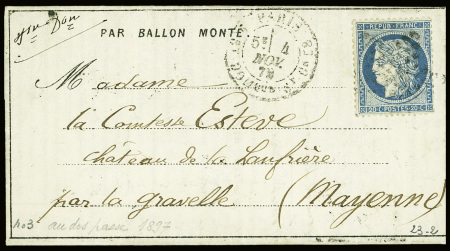 Mon Don
PAR BALLON MONTÉ.
PARIS
5E 4
NOV.
70
REPUB. FRANC.
20 C POSTES 20 C
Madame
la Comtesse Esteve
château de la
par la gravelle (Mayenne)
403 au des passe 1897
23-2